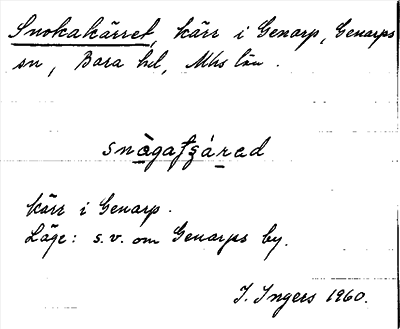 Snokakärret, kärr i Genarp, Genarps
sn, Bara hd, Mhs län.
kärr i Genarp.
Läge: s.v. om Genarps by.
I. Ingers 1960.